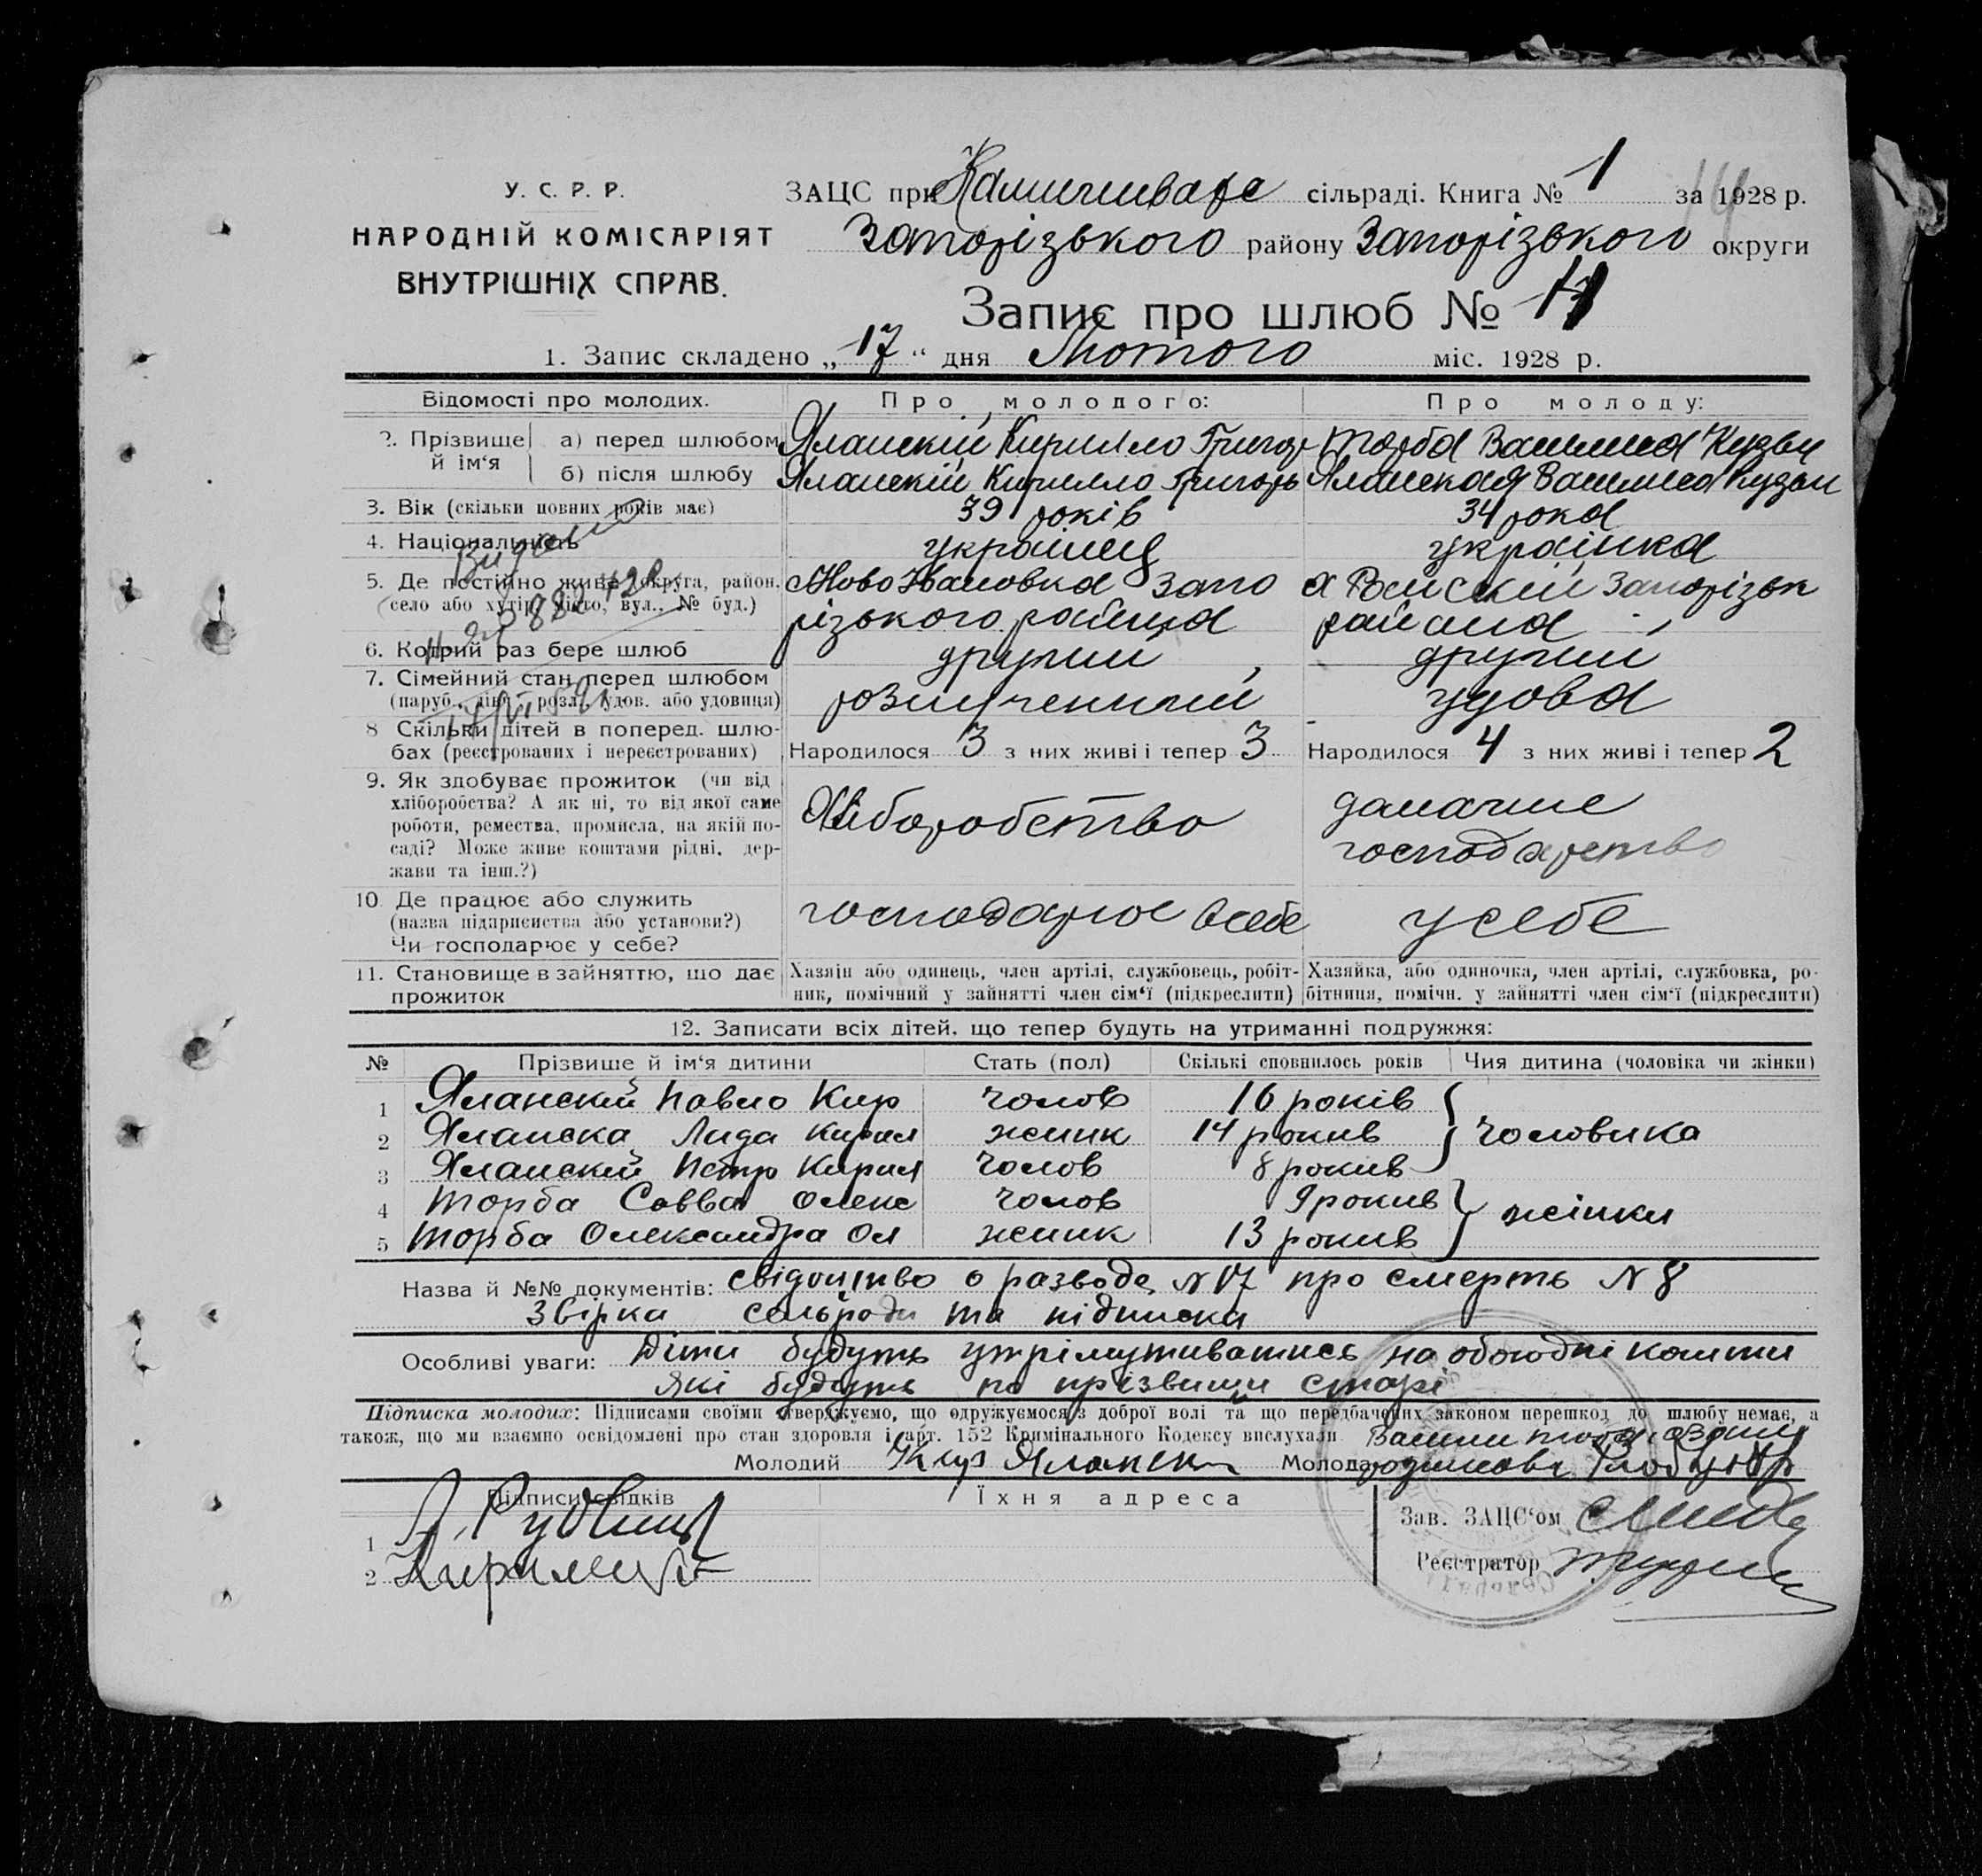 У. С. Р. Р.
НАРОДНІЙ КОМІСАРІЯТ
ВНУТРІШНІХ СПРАВ.
ЗАЦС при сільраді. Книга № 1 за 1928 р.
Запорізького району Запорізького округи
Запис про шлюб №
1. Запис складено „17“ дня Лютого міс. 1928 р.
Відомості про молодих. Про молодого: Про молоду:
2. Прізвище й ім‘я а) перед шлюбом Яланский Кирилло Григор Торба Васшиса Кузьм
б) після шлюбу Яланскій Кирилло Григорь Яланская Кузьм
3. Вік (скільки повних років має) 39 років 34 рока
4. Національність українец українка
5. Де постійно живе (округа, район, Ново Ивановка Запо х Запорізьк
село або хутір, місто, вул., № буд.) різького района района
Видано
6. Котрий раз бере шлюб другий другий
7. Сімейний стан перед шлюбом
(паруб., дівч., розл., удов. або удовиця) розлученний удова
8 Скільки дітей в поперед. шлю-
бах (реєстрованих і нереєстрованих) Народилося 3 з них живі і тепер 3 Народилося 4 з них живі і тепер 2
9. Як здобуває прожиток (чи від
хліборобства? А як ні, то від якої саме Хліборобство домашнє
роботи, ремества, промисла, на якій по-
саді? Може живе коштами рідні, дер- господарство
жави та інш.?)
10. Де працює або служить
(назва підприємства або установи?) господарює всебе усебе
Чи господарює у себе?
11. Становище в зайняттю, що дає Хазяін або одинець, член артілі, службовець, робіт- Хазяйка, або одиночка, член артілі, службовка, ро-
прожиток ник, помічний у зайнятті член сім‘ї (підкреслити) бітниця, помічн. у зайнятті член сім‘ї (підкреслити)
12. Записати всіх дітей, що тепер будуть на утриманні подружжя:
№ Прізвише й ім‘я дитини Стать (пол) Скількі сповнилось років Чия дитина (чоловіка чи жінки)
1 Яланский Павло Кир чолов 16 років
2 Яланска Лида Кирил жинк 14 рокив чоловика
3 Яланский Петр Кирил чолов 8 рокив
4 Торба Савва Олекс чолов 9 рокив жінки
5 Торба Олександра Ол жинк 13 рокив
Назва й №№ документів: свідоцтво о разводе N 17 про смерть N 8
Звірка сельради та підписка
Особливі уваги: Діти будуть на обоюдні кошти
які будуть по прізвищи старі
Підписка молодих: Підписами своїми стверджуємо, що одружуємося з доброї волі та що передбачених законом перешкод до шлюбу немає, а
також, що ми взаємно освідомлені про стан здоровля і арт. 152 Кримінального Кодексу вислухали.
Молодий Кир Яланск Молода
Підписи свідків Їхня адреса
1
2
Зав. ЗАЦС‘ом
Реєстратор